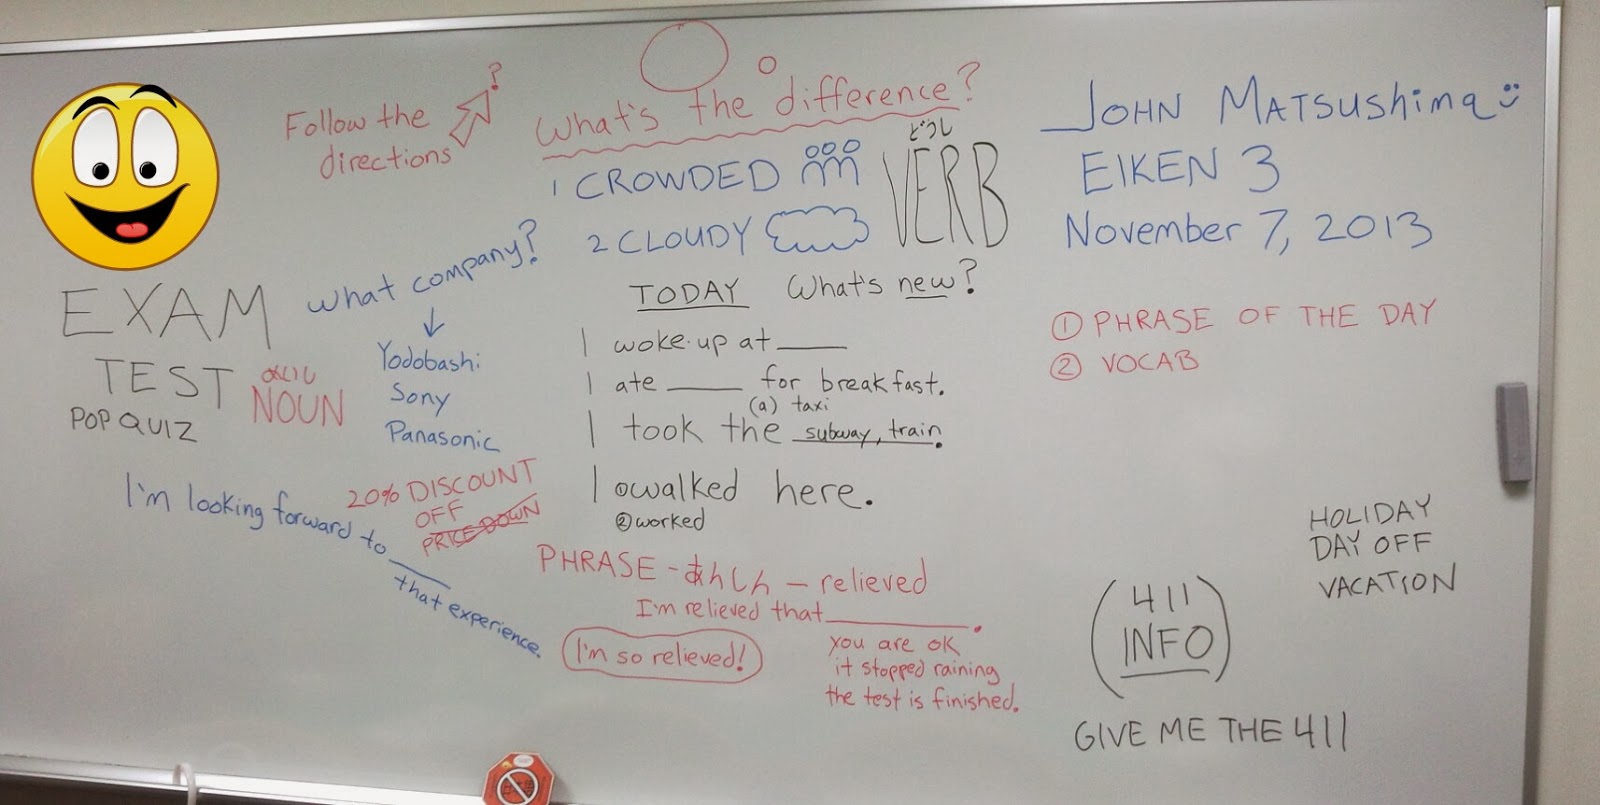 Follow the
directions
?
What's the difference?
1 CROWDED
2 CLOUDY
どうし
VERB
JOHN MATSUSHIMA
EIKEN 3
November 7, 2013
① PHRASE OF THE DAY
② VOCAB
EXAM
TEST
POP QUIZ
NOUN
What company?
Yodobashi
Sony
Panasonic
TODAY What's new?
I woke up at ____
I ate ____ for breakfast.
(a) taxi
I took the subway, train.
I ①walked here.
②worked
I'm looking forward to ____
that experience.
20% DISCOUNT
OFF
PRICE DOWN
PHRASE - あんしん - relieved
I'm relieved that ____.
I'm so relieved!
you are ok
it stopped raining
the test is finished.
HOLIDAY
DAY OFF
VACATION
(411
INFO)
GIVE ME THE 411